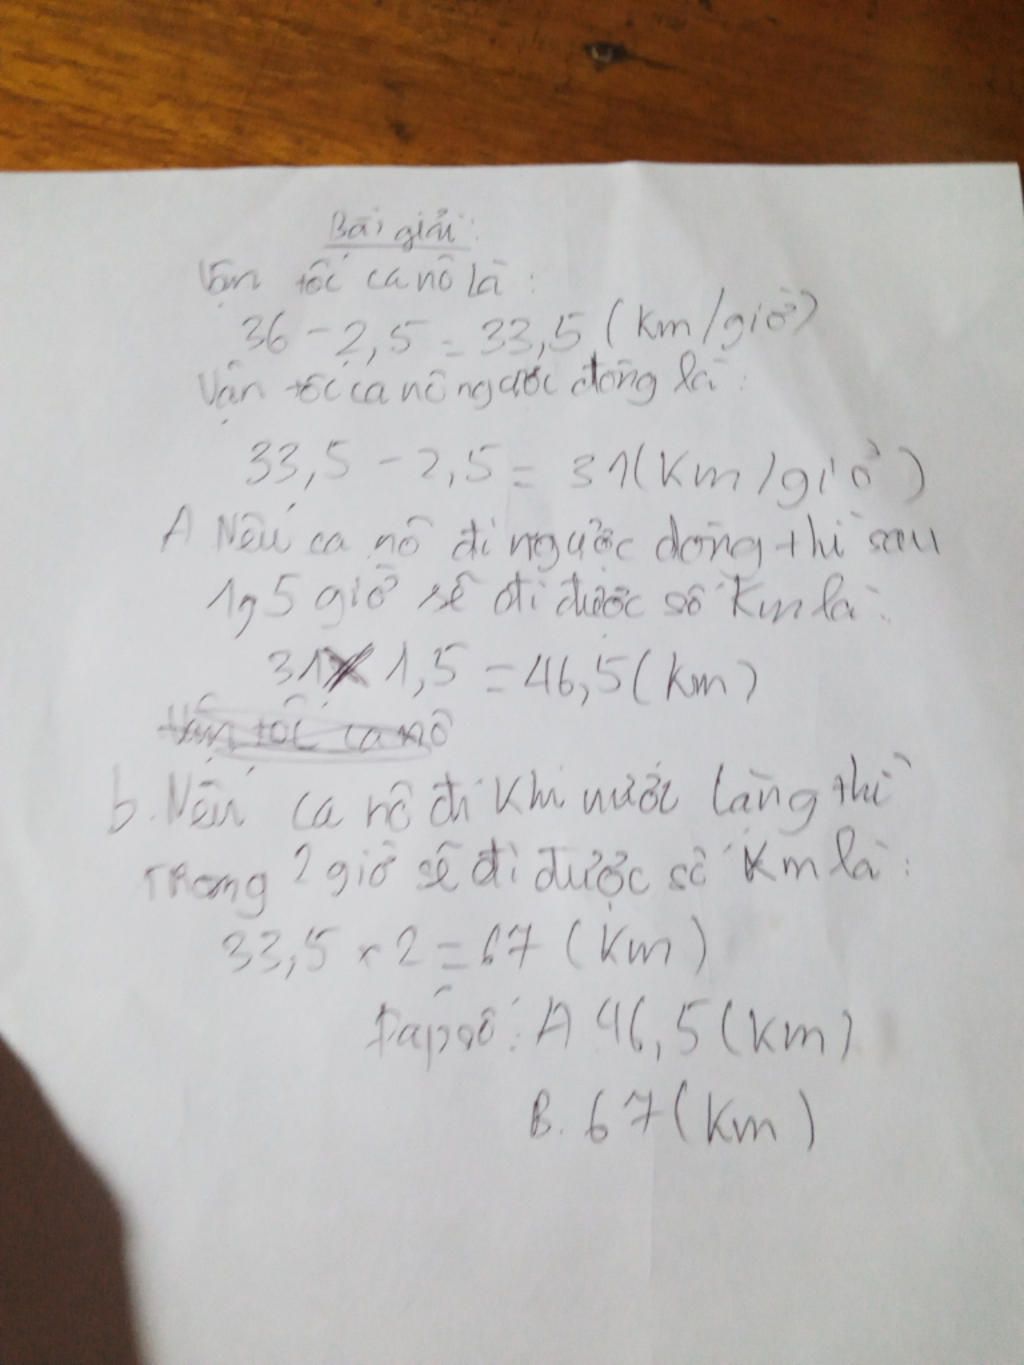 Bài giải:
Vận tốc ca nô là:
36 - 2,5 = 33,5 (km/giờ)
Vận tốc ca nô ngược dòng là:
33,5 - 2,5 = 31 (km/giờ)
A Nếu ca nô đi ngược dòng thì sau
1,5 giờ sẽ đi được số km là:
31 x 1,5 = 46,5 (km)
Vận tốc ca nô
b. Nếu ca nô đi khi nước lặng thì
Trong 2 giờ sẽ đi được số km là:
33,5 x 2 = 67 (km)
Đáp số: A 46,5 (km)
B. 67 (km)